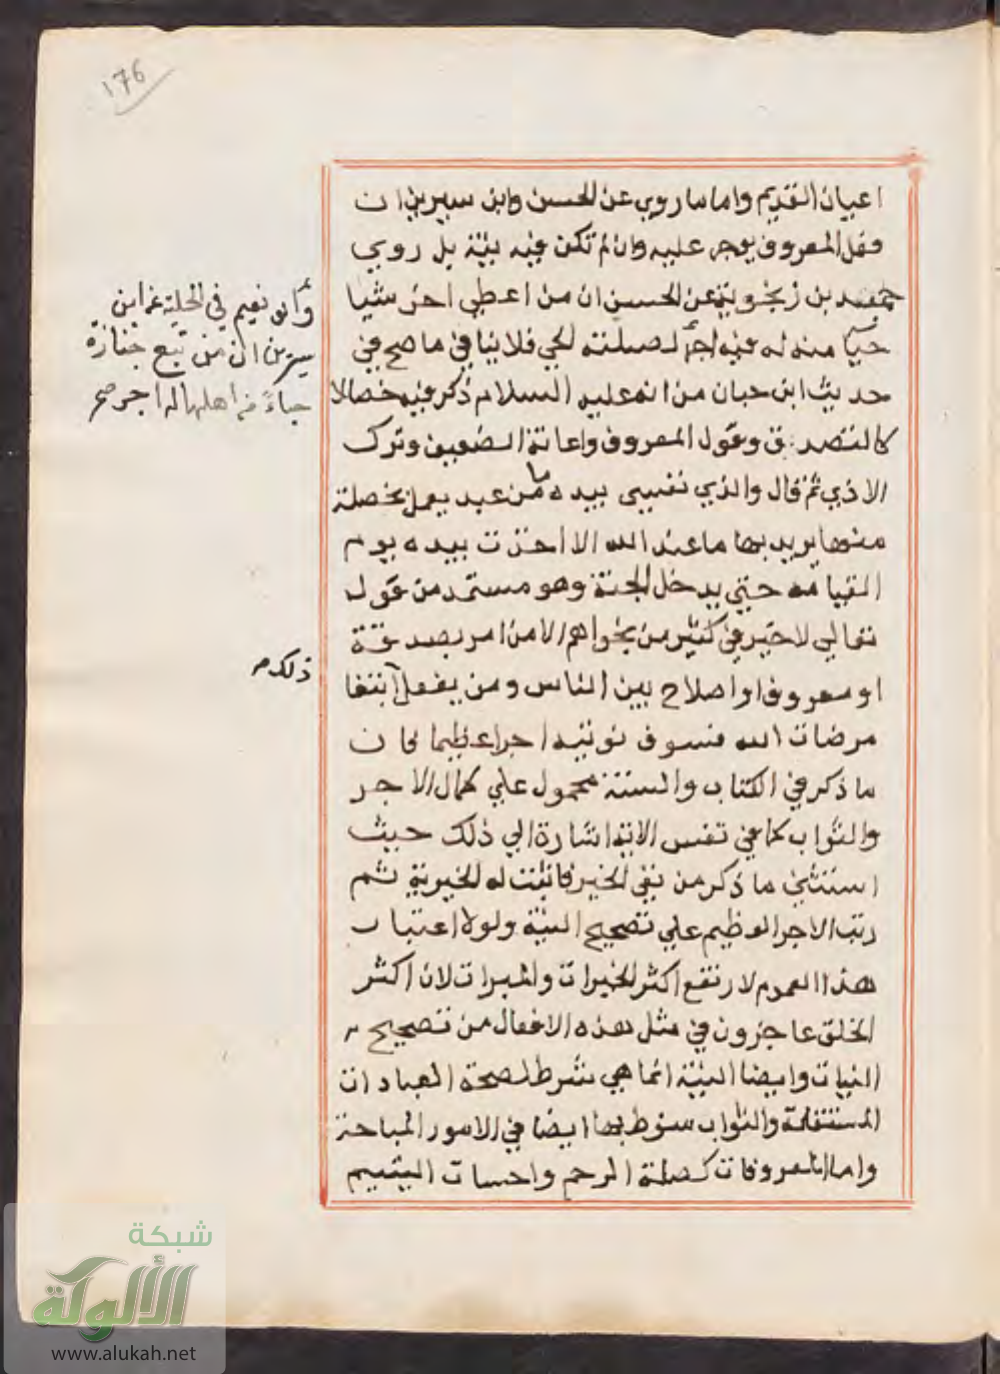 ١٧٦
اعيان القديم واما ما روي عن الحسن وابن سيرين ان
فعل المعروف يوجر عليه وان لم تكن فيه نية بل روي
حميد بن زنجوية عن الحسن ان من اعطي اخر شيا
حياء منه له فيه اجر لصلته الحي فلا ينافي ما صح في
حديث ابن حبان من انه عليه السلام ذكر فيه خصالا
كالتصدق وقول المعروف واعانة الضعيف وترك
الاذي ثم قال والذي نفسي بيده ما من عبد يعمل بخصلة
منها يريد بها ما عند الله الا اخذت بيده يوم
القيامه حتي يدخل الجنة وهو مستمد من قوله
تعالي لا خير في كثير من نجواهم الا من امر بصدقة
او معروف او اصلاح بين الناس ومن يفعل ابتغا
مرضات الله فسوف نوتيه اجرا عظيما فان
ما ذكر في الكتاب والسنة محمول علي كمال الاجر
والثواب كما في نفس الاية اشارة الي ذلك حيث
استثني ما ذكر من نفي الخير فاثبت له الخيرية ثم
رتب الاجر العظيم علي تصحيح النية ولولا اعتبار
هذا العموم لارتفع اكثر الخيرات والمبرات لان اكثر
الخلق عاجزون في مثل هذه الافعال من تصحيح
النيات وايضا النية انما هي شرط لصحة العبادات
المستقلة والثواب منوط بها ايضا في الامور المباحة
واما المعروفات كصلة الرحم واحسان اليتيم
وابو نعيم في الحلية عن ابن
سيرين ان من تبع جنازة
حياءً من اهلها له اجر صح
ذلك
شبكة
الألوكة
www.alukah.net